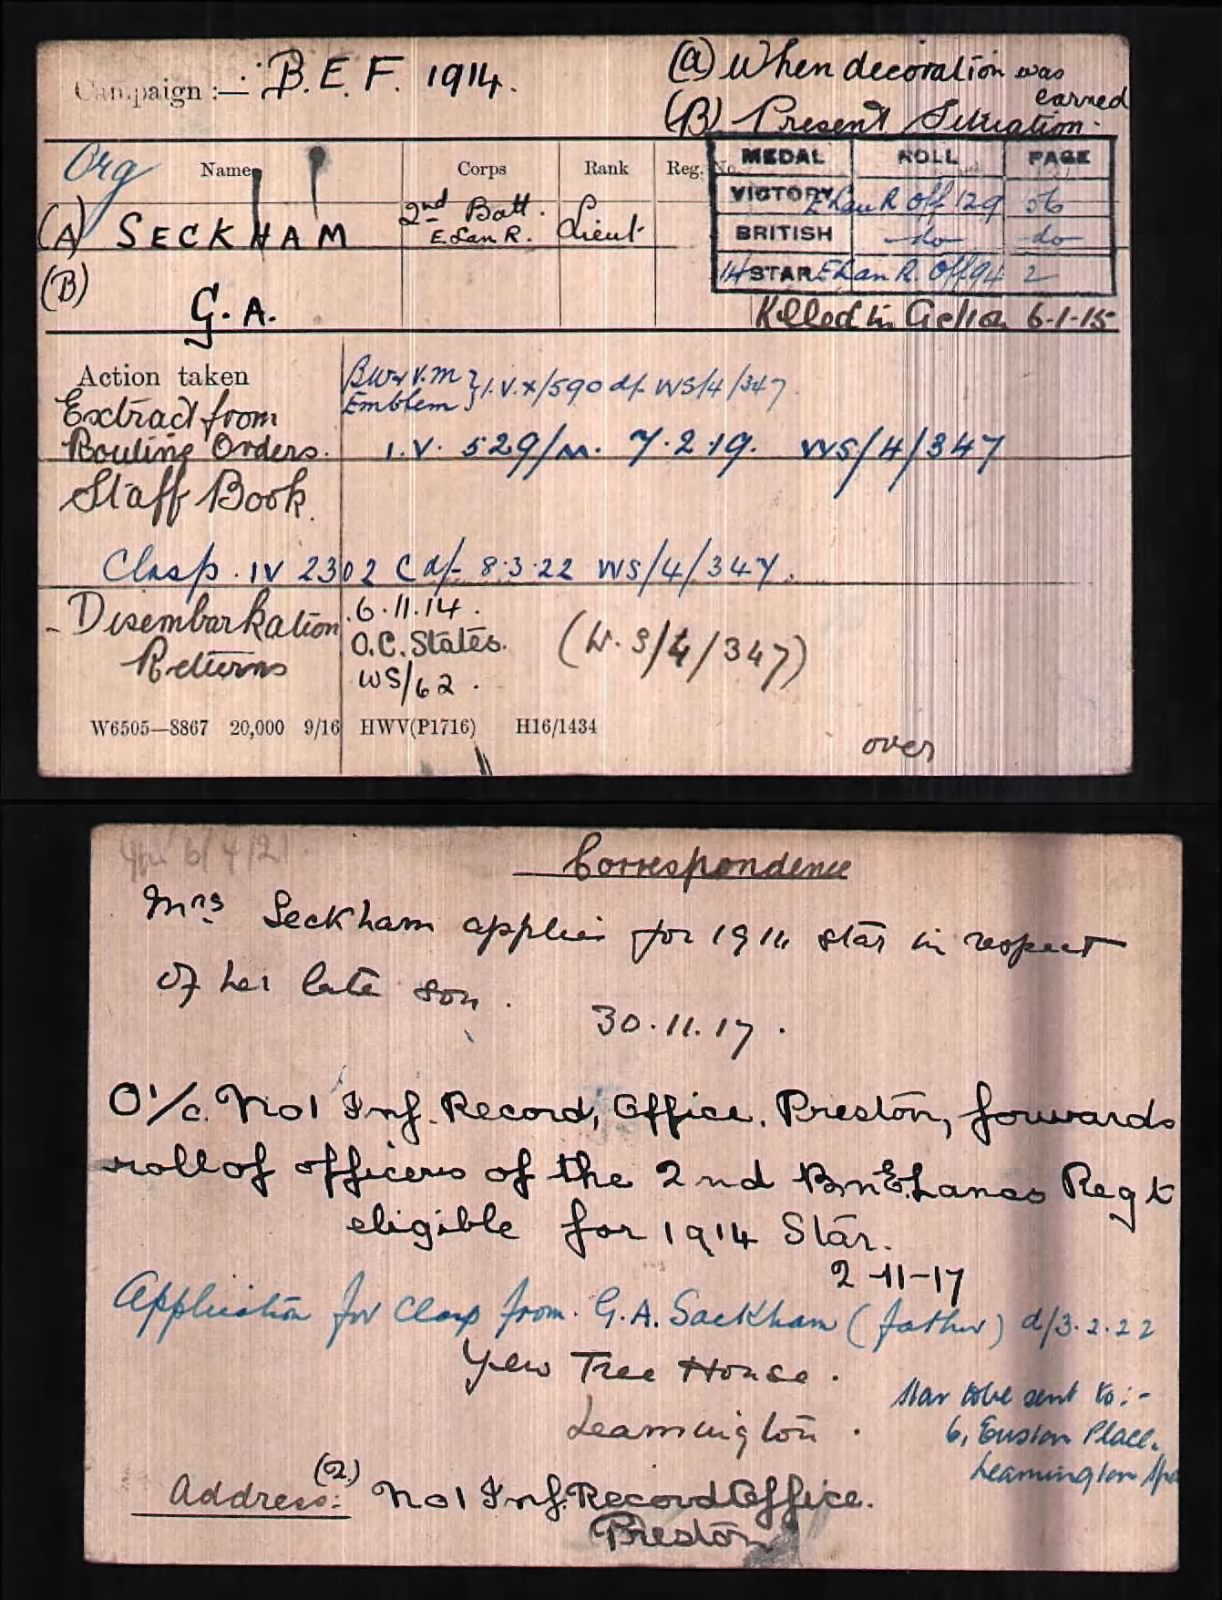 Campaign :— B.E.F. 1914.
(A) When decoration was
earned
(B) Present Situation.
Org Name Corps Rank Reg. No.
MEDAL ROLL PAGE
VICTORY E Lan R Off 129 56
BRITISH —do— —do—
14 STAR E Lan R. Off 94 2
(A) SECKHAM 2nd Batt. E. Lan R. Lieut
(B)
G. A.
Killed in Action 6-1-15
Action taken
BW & V.M } I.V.X/590 d/- WS/4/347
Emblem
Extract from
Routine Orders. I.V. 529/M. 7.2.19. WS/4/347
Staff Book
Clasp. IV 2302 C d/- 8.3.22 WS/4/347.
Disembarkation
Returns
6.11.14.
O.C. States.
WS/62.
(W.S/4/347)
W6505—8867 20,000 9/16 HWV(P1716) H16/1434
over
6/4/21
Correspondence
Mrs Seckham applies for 1914 star in respect
of her late son.
30.11.17.
O i/c. No 1 Inf. Record, Office, Preston, forwards
roll of officers of the 2nd Bn E. Lancs Regt
eligible for 1914 Star.
2-11-17
Application for Clasp from. G.A. Seckham (father) d/3.2.22
Yew Tree House.
Leamington.
Star to be sent to:-
6, Euston Place.
Leamington Spa
Address: (2.) No 1 Inf. Record Office.
Preston